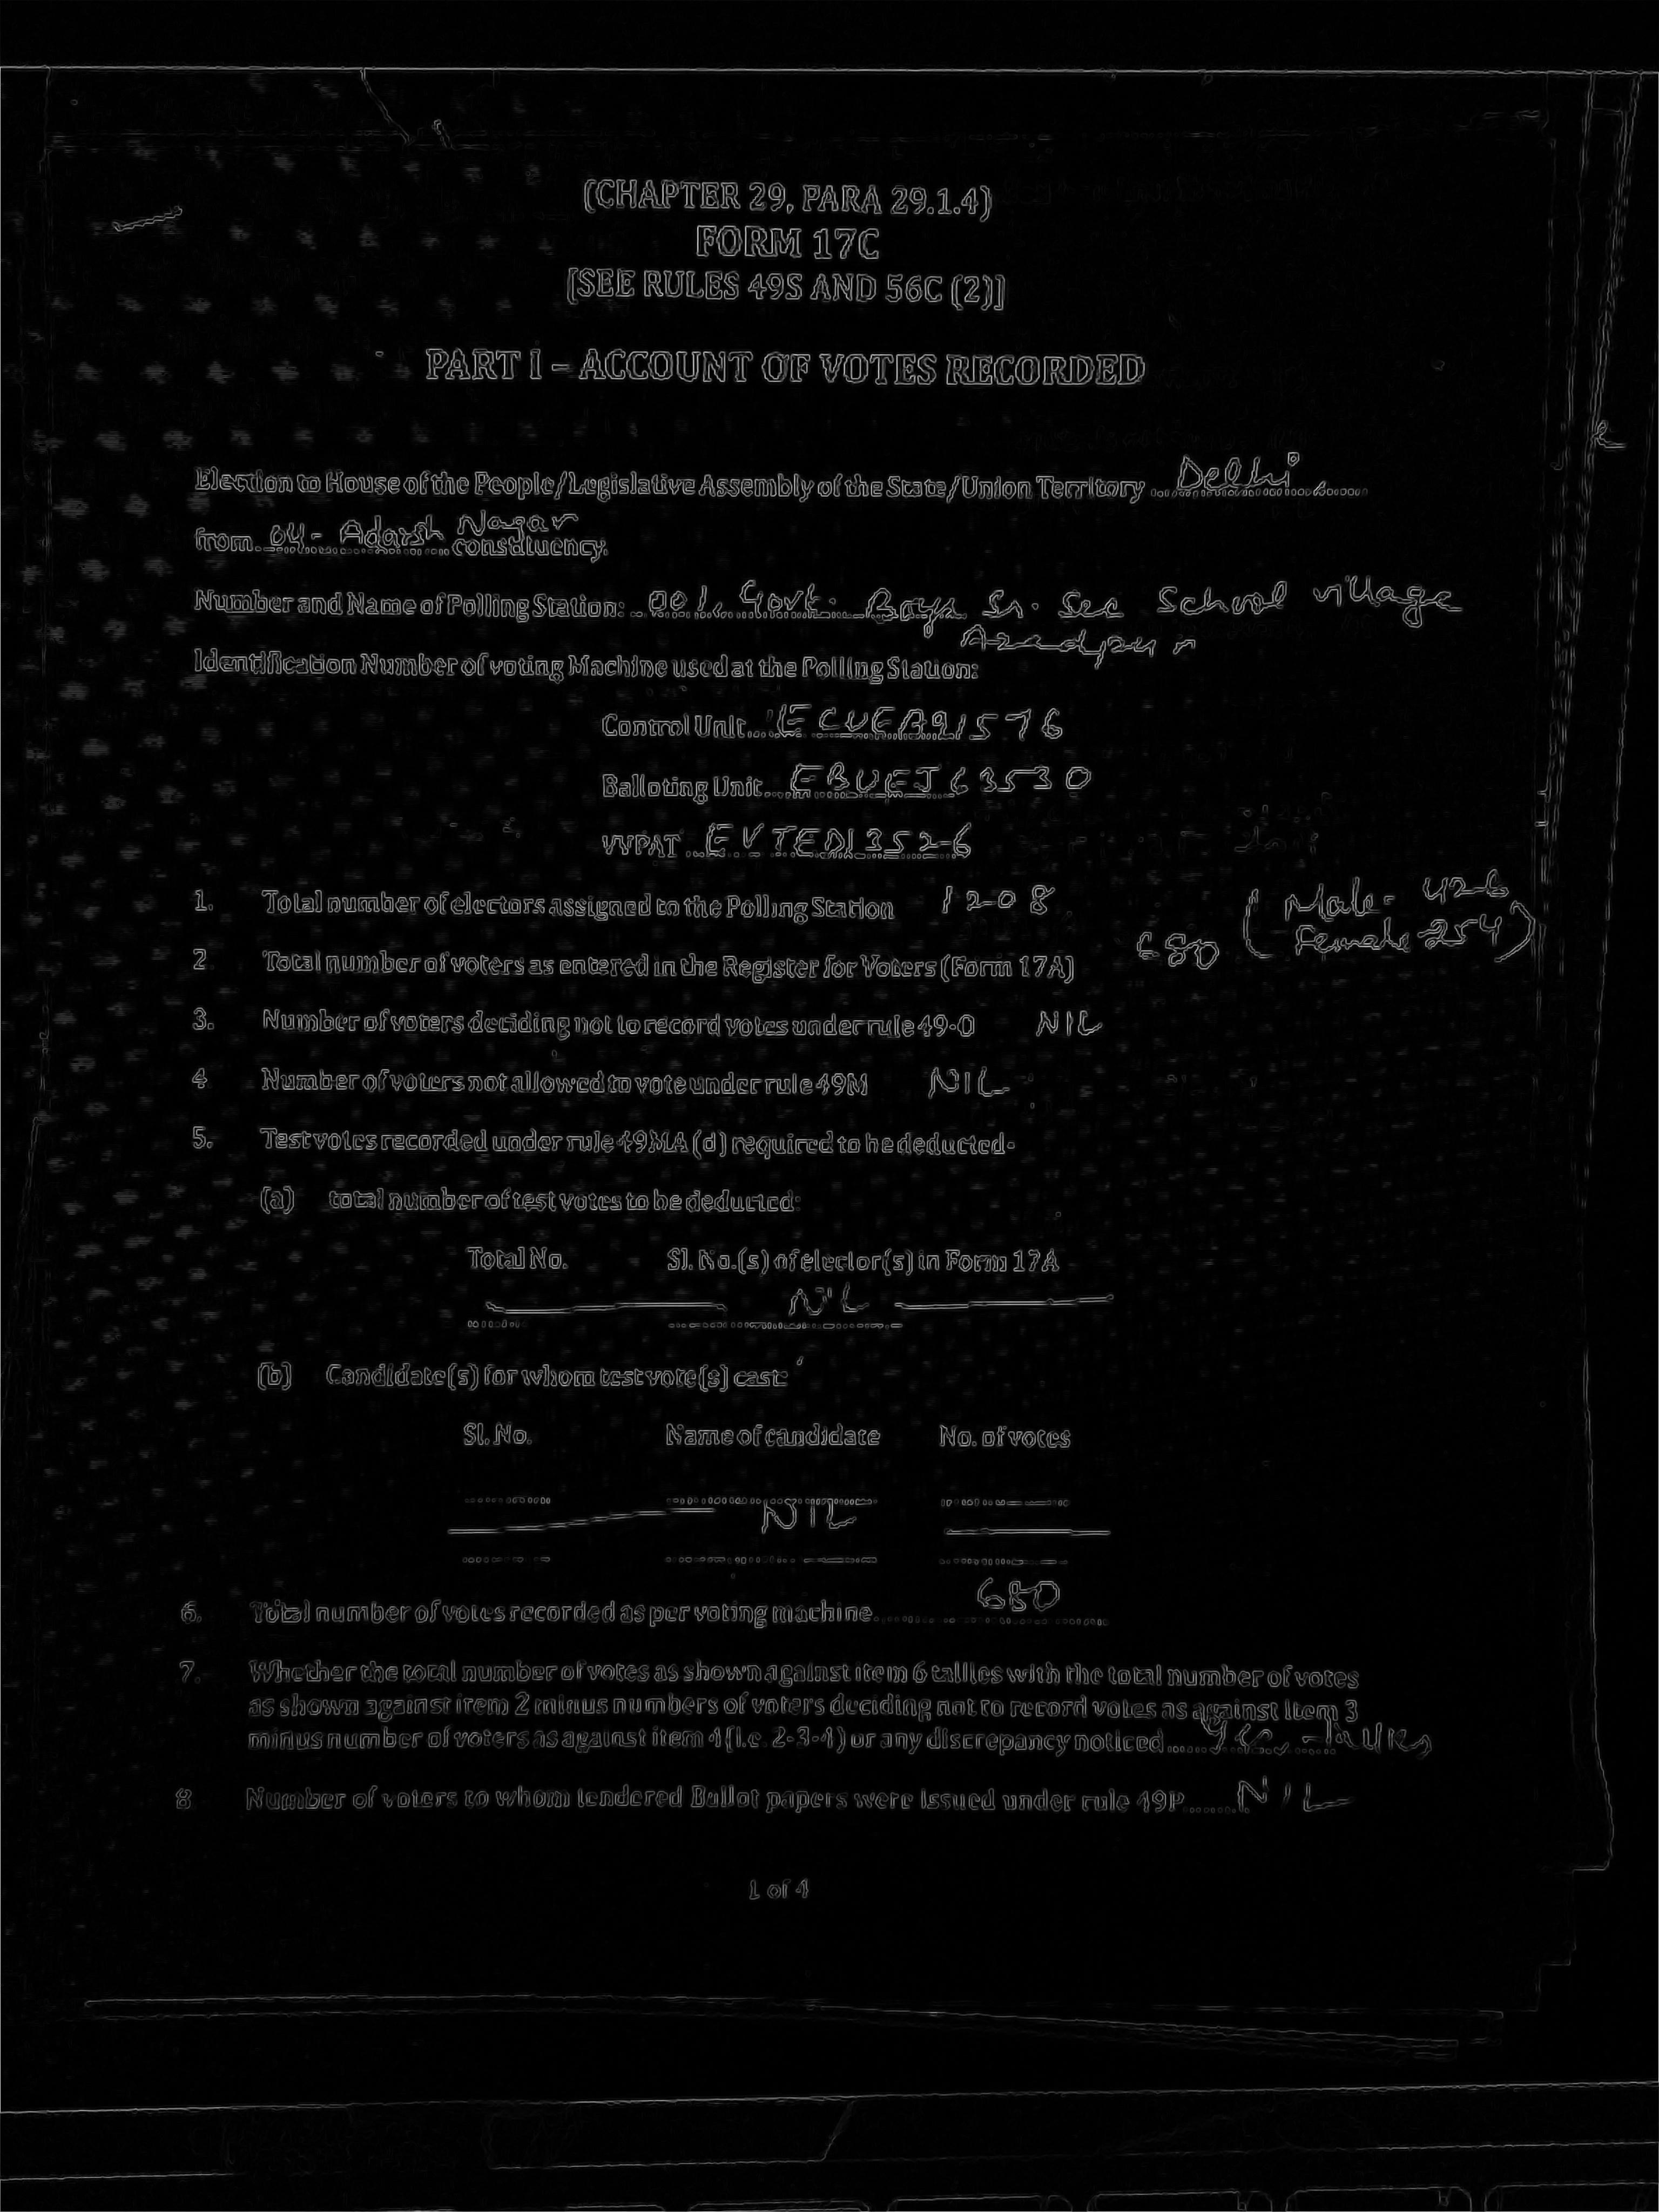 (CHAPTER 29, PARA 29.1.4)
FORM 17C
[SEE RULES 49S AND 56C (2)]
PART I – ACCOUNT OF VOTES RECORDED
Election to House of the People/Legislative Assembly of the State/Union Territory ... Delhi ......
from 04- Adarsh Nagar constituency.
Number and Name of Polling Station: .. 001, Govt. Boys Sr. Sec School village
Azadpur
Identification Number of voting Machine used at the Polling Station:
Control Unit... ECUEA91576
Balloting Unit... EBUEJ63530
VVPAT .. EVTED13526
1. Total number of electors assigned to the Polling Station 1208
2 Total number of voters as entered in the Register for Voters (Form 17A) 680 (Male- 426 Female- 254)
3. Number of voters deciding not to record votes under rule 49-O NIL
4 Number of voters not allowed to vote under rule 49M NIL
5. Test votes recorded under rule 49MA (d) required to be deducted-
(a) total number of test votes to be deducted:
Total No. Sl. No.(s) of elector(s) in Form 17A
NIL
(b) Candidate(s) for whom test vote(s) cast:
Sl. No. Name of candidate No. of votes
NIL
6. Total number of votes recorded as per voting machine........ 680
7. Whether the total number of votes as shown against item 6 tallies with the total number of votes
as shown against item 2 minus numbers of voters deciding not to record votes as against item 3
minus number of voters as against item 4 (i.e. 2-3-4) or any discrepancy noticed...... Yes,
8 Number of voters to whom tendered Ballot papers were issued under rule 49P........ NIL
1 of 4